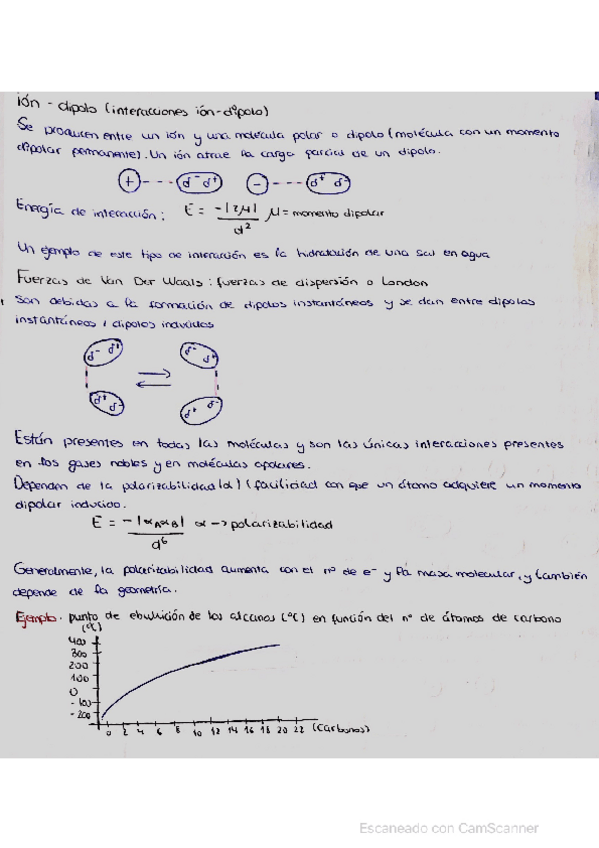 ión - dipolo (interacciones ión-dipolo)
Se producen entre un ión y una molécula polar o dipolo (molécula con un momento
dipolar permanente). Un ión atrae la carga parcial de un dipolo.
+ --- δ- δ+ - --- δ+ δ-
Energía de interacción: E = -|z,μ| / d² μ = momento dipolar
Un ejemplo de este tipo de interacción es la hidratación de una sal en agua
Fuerzas de Van Der Waals: fuerzas de dispersión o London
Son debidas a la formación de dipolos instantáneos y se dan entre dipolos
instantáneos / dipolos inducidos
δ- δ+ δ- δ+
δ+ δ- δ+ δ-
Están presentes en todas las moléculas y son las únicas interacciones presentes
en los gases nobles y en moléculas apolares.
Dependen de la polarizabilidad (α) (facilidad con que un átomo adquiere un momento
dipolar inducido.
E = -|αAαB| / d⁶ α -> polarizabilidad
Generalmente, la polarizabilidad aumenta con el nº de e- y la masa molecular, y también
depende de la geometría.
Ejemplo. punto de ebullición de los alcanos (ºC) en función del nº de átomos de carbono
(ºC)
400
300
200
100
0
-100
-200
0 2 4 6 8 10 12 14 16 18 20 22 (carbonos)
Escaneado con CamScanner